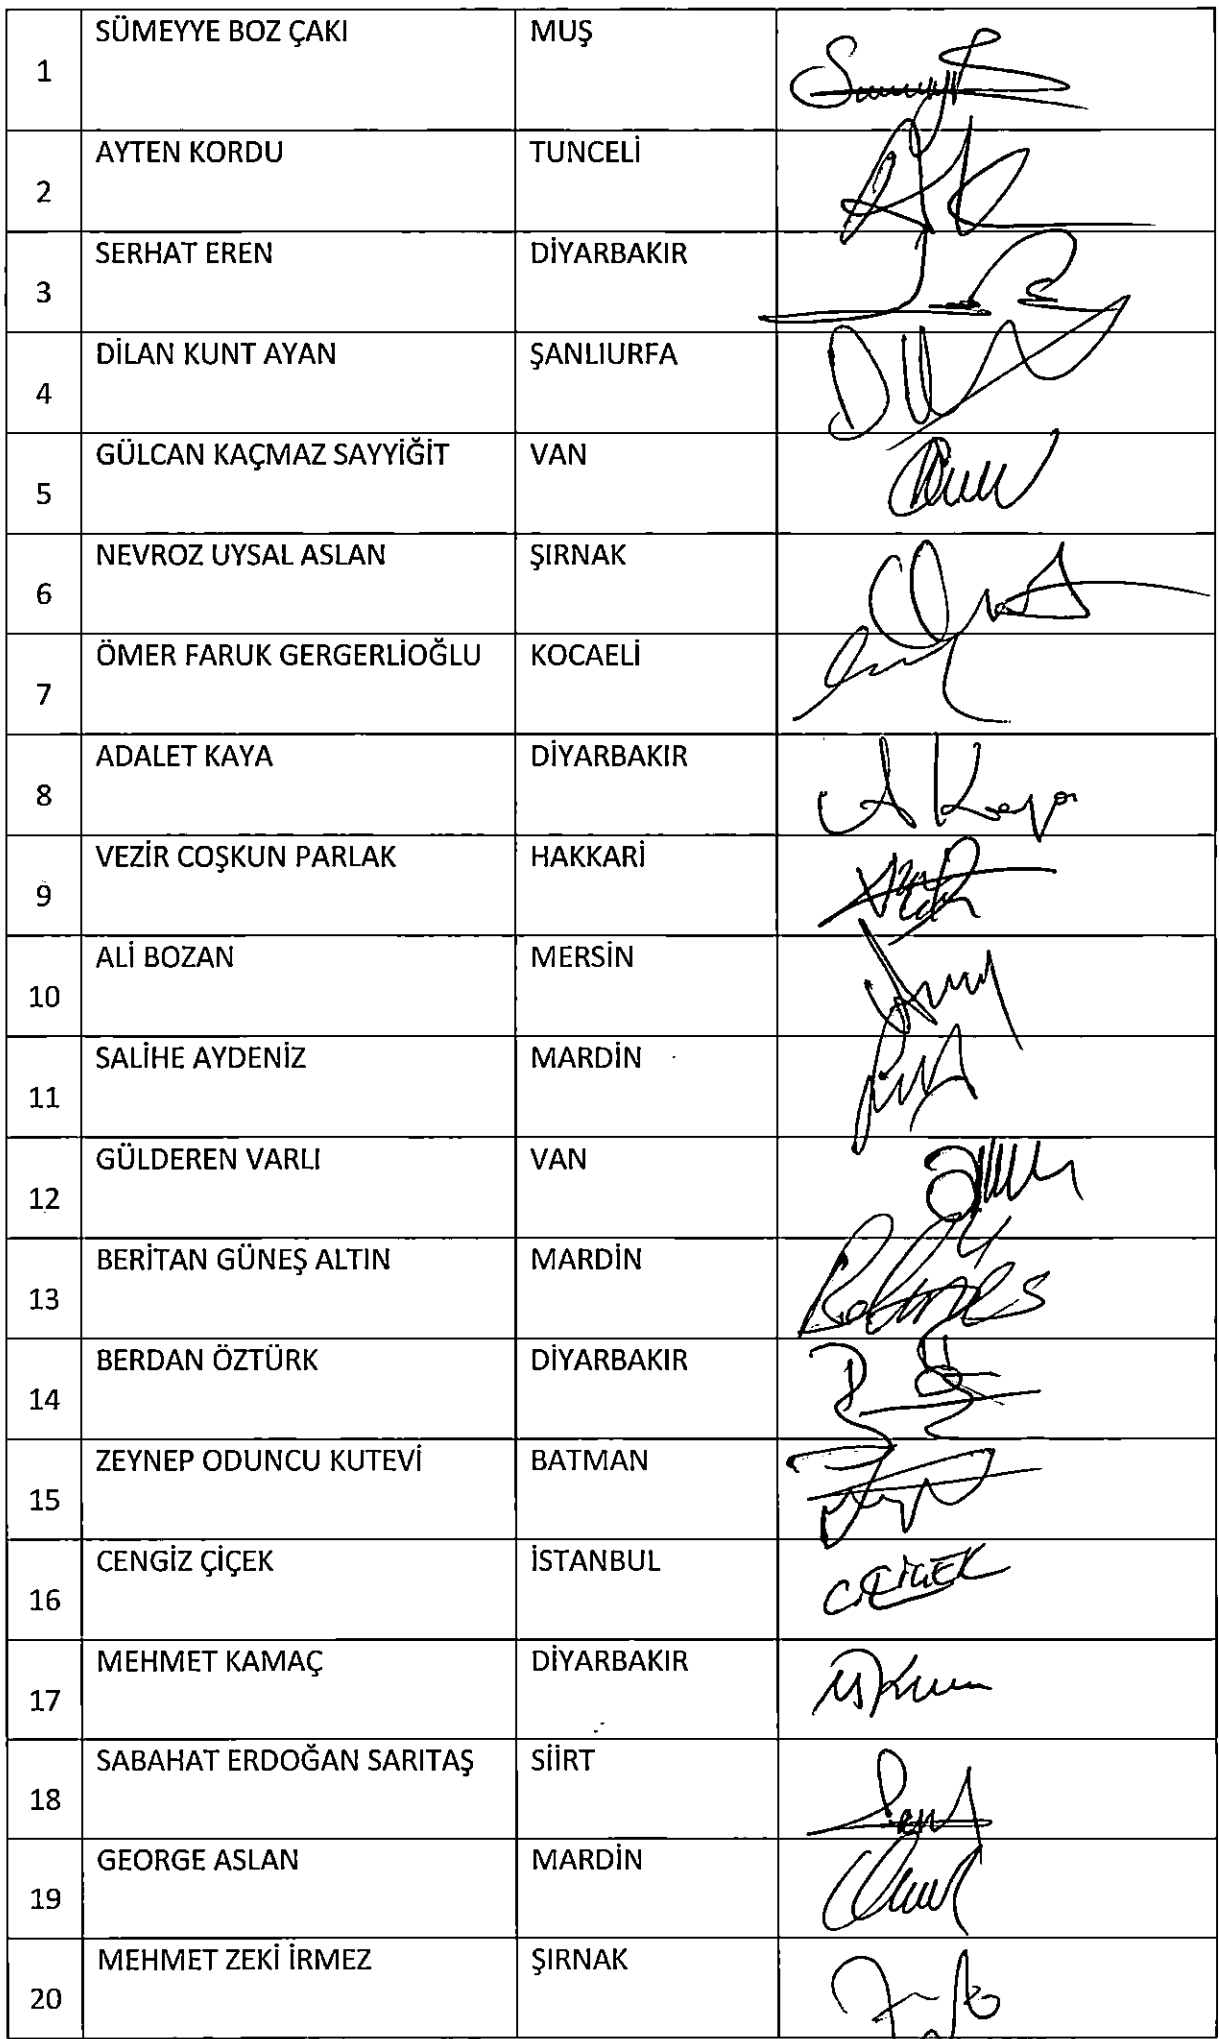 1 SÜMEYYE BOZ ÇAKI MUŞ
2 AYTEN KORDU TUNCELİ
3 SERHAT EREN DİYARBAKIR
4 DİLAN KUNT AYAN ŞANLIURFA
5 GÜLCAN KAÇMAZ SAYYİĞİT VAN
6 NEVROZ UYSAL ASLAN ŞIRNAK
7 ÖMER FARUK GERGERLİOĞLU KOCAELİ
8 ADALET KAYA DİYARBAKIR A Kaya
9 VEZİR COŞKUN PARLAK HAKKARİ
10 ALİ BOZAN MERSİN
11 SALİHE AYDENİZ MARDİN
12 GÜLDEREN VARLI VAN
13 BERİTAN GÜNEŞ ALTIN MARDİN
14 BERDAN ÖZTÜRK DİYARBAKIR
15 ZEYNEP ODUNCU KUTEVİ BATMAN
16 CENGİZ ÇİÇEK İSTANBUL C.ÇİÇEK
17 MEHMET KAMAÇ DİYARBAKIR
18 SABAHAT ERDOĞAN SARITAŞ SİİRT
19 GEORGE ASLAN MARDİN
20 MEHMET ZEKİ İRMEZ ŞIRNAK